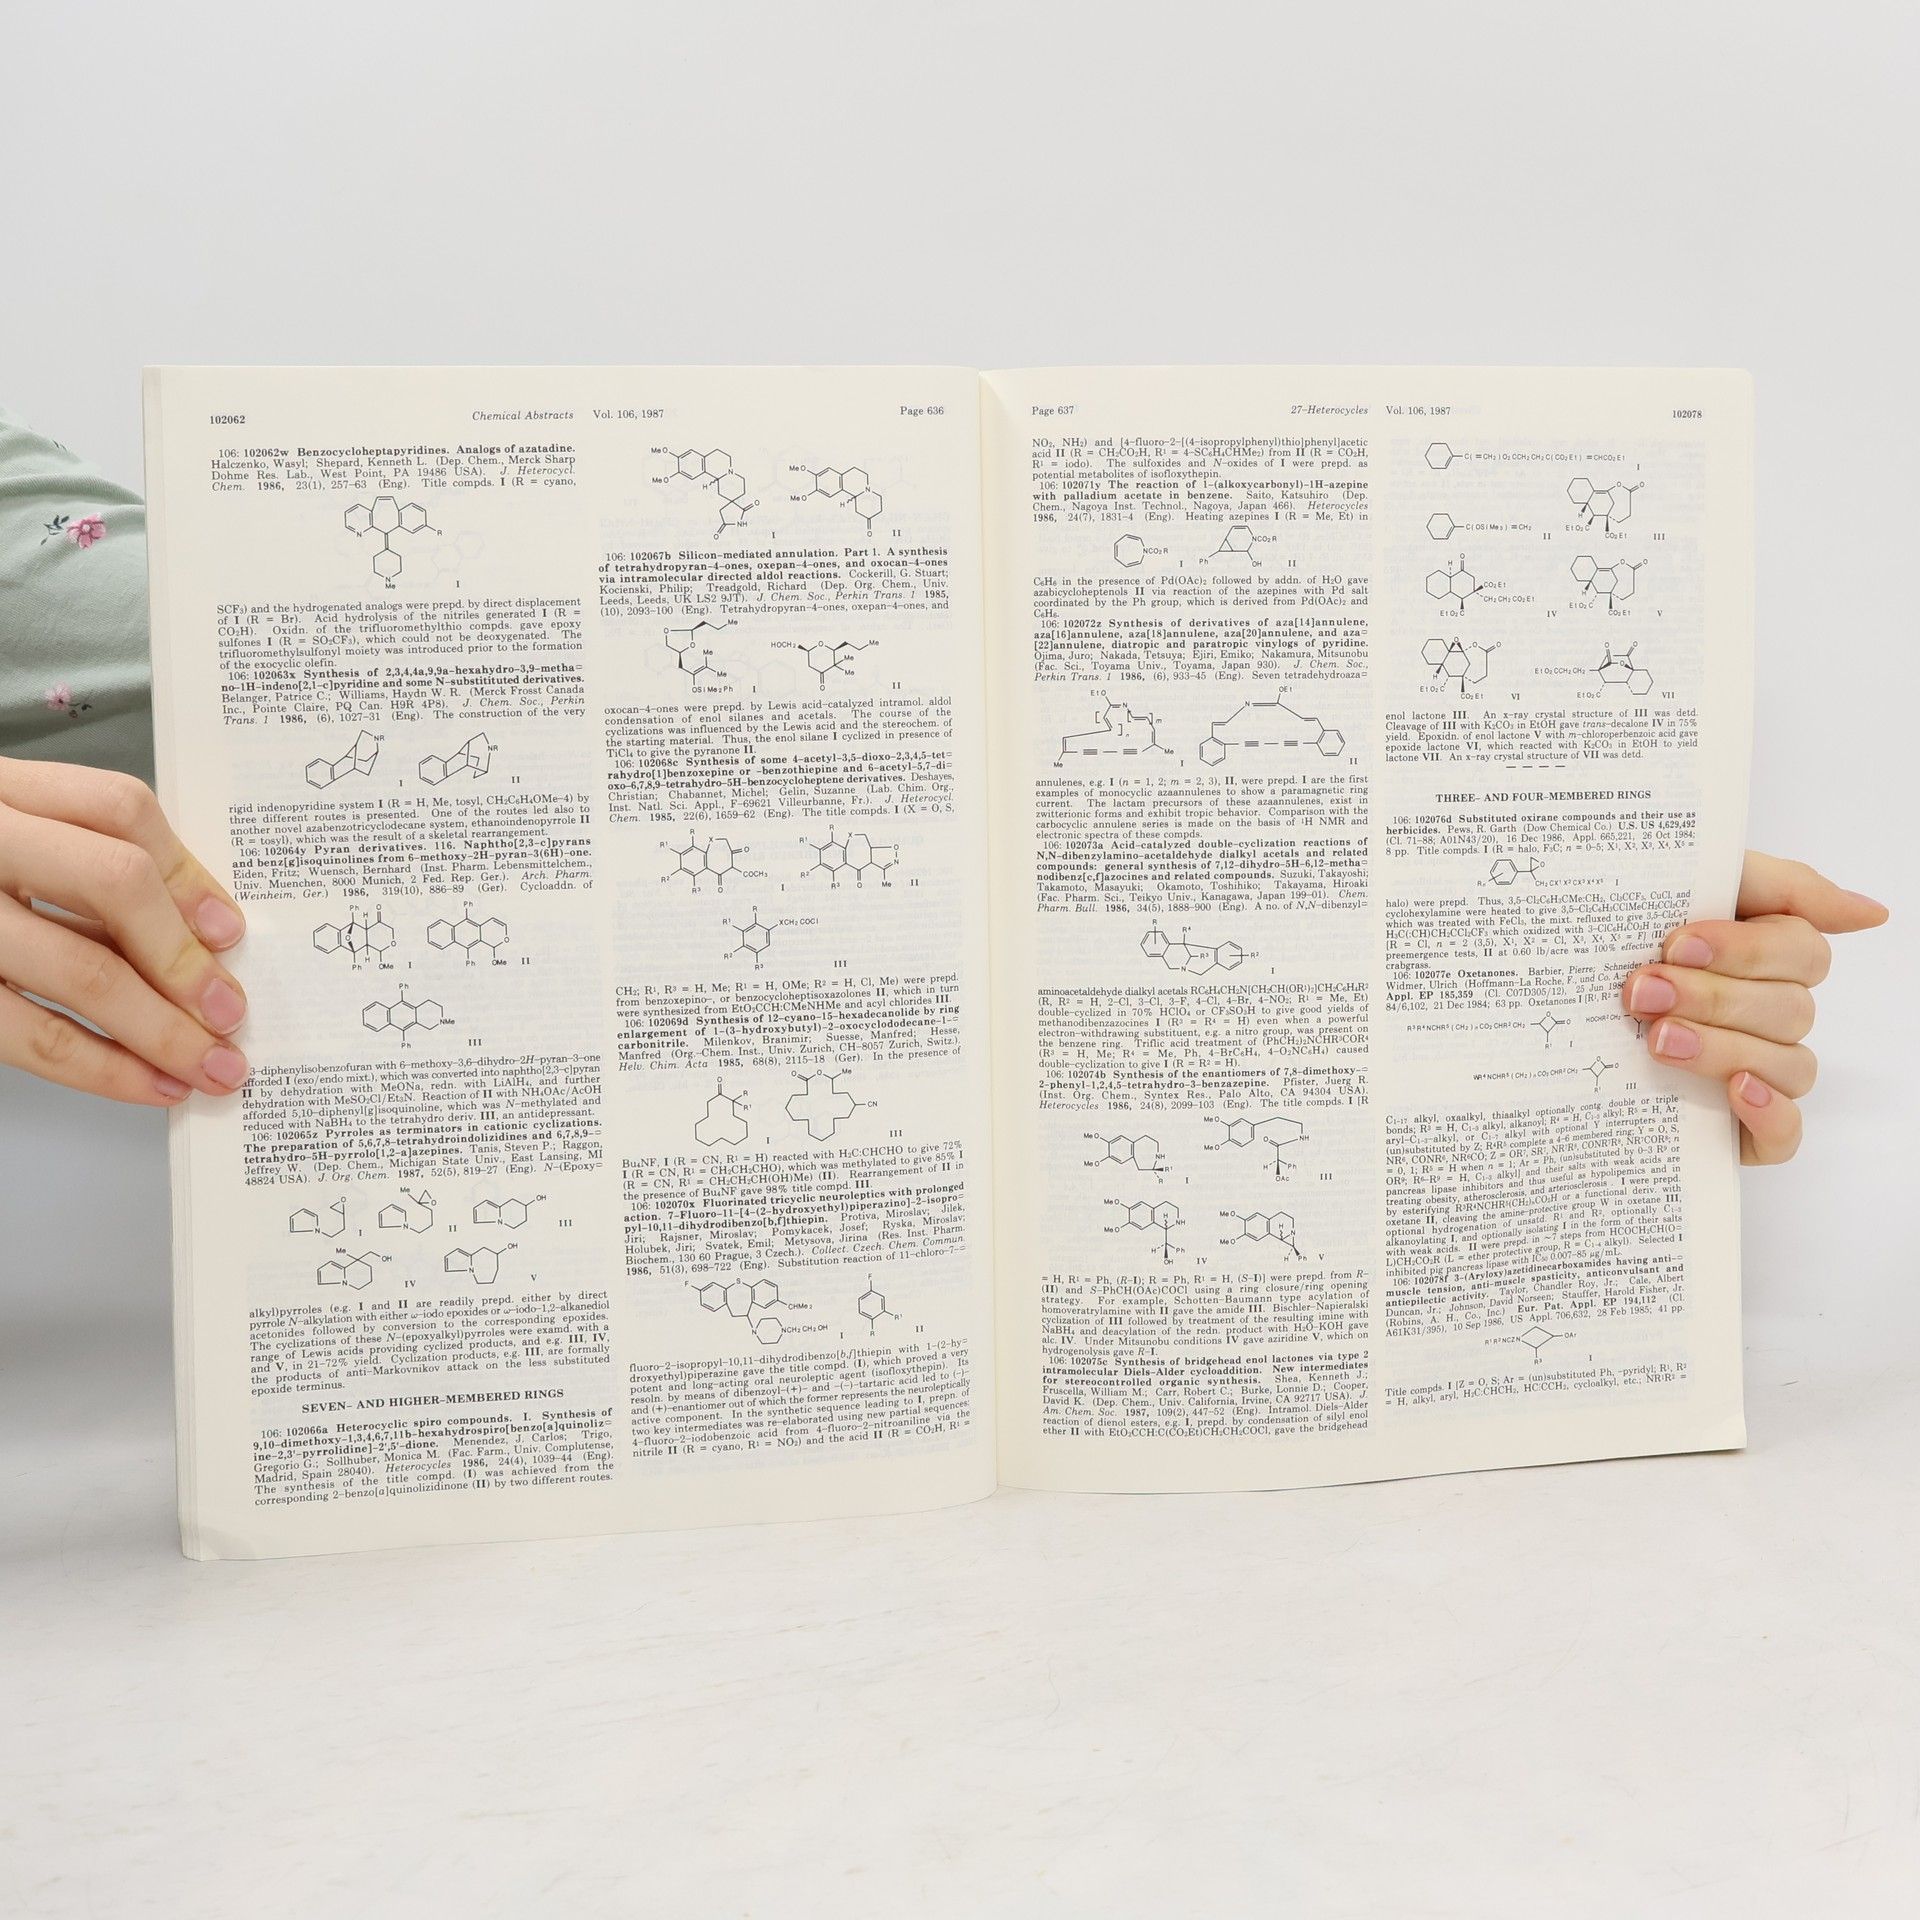 102062
Chemical Abstracts Vol. 106, 1987
Page 636
106: 102062w Benzocycloheptapyridines. Analogs of azatadine.
Halczenko, Wasyl; Shepard, Kenneth L. (Dep. Chem., Merck Sharp
Dohme Res. Lab., West Point, PA 19486 USA). J. Heterocycl.
Chem. 1986, 23(1), 257–63 (Eng). Title compds. I (R = cyano,
N
R
N
Me
I
SCF₃) and the hydrogenated analogs were prepd. by direct displacement
of I (R = Br). Acid hydrolysis of the nitriles generated I (R =
CO₂H). Oxidn. of the trifluoromethylthio compds. gave epoxy
sulfones I (R = SO₂CF₃), which could not be deoxygenated. The
trifluoromethylsulfonyl moiety was introduced prior to the formation
of the exocyclic olefin.
106: 102063x Synthesis of 2,3,4,4a,9,9a-hexahydro-3,9-metha=
no-1H-indeno[2,1-c]pyridine and some N-substitituted derivatives.
Belanger, Patrice C.; Williams, Haydn W. R. (Merck Frosst Canada
Inc., Pointe Claire, PQ Can. H9R 4P8). J. Chem. Soc., Perkin
Trans. 1 1986, (6), 1027–31 (Eng). The construction of the very
NR
I
NR
II
rigid indenopyridine system I (R = H, Me, tosyl, CH₂C₆H₄OMe-4) by
three different routes is presented. One of the routes led also to
another novel azabenzotricyclodecane system, ethanoindenopyrrole II
(R = tosyl), which was the result of a skeletal rearrangement.
106: 102064y Pyran derivatives. 116. Naphtho[2,3-c]pyrans
and benz[g]isoquinolines from 6-methoxy-2H-pyran-3(6H)-one.
Eiden, Fritz; Wuensch, Bernhard (Inst. Pharm. Lebensmittelchem.,
Univ. Muenchen, 8000 Munich, 2 Fed. Rep. Ger.). Arch. Pharm.
(Weinheim, Ger.) 1986, 319(10), 886–89 (Ger). Cycloaddn. of
Ph
H
O
Ph
H
OMe
I
Ph
Ph
OMe
II
Ph
NMe
Ph
III
3-diphenylisobenzofuran with 6-methoxy-3,6-dihydro-2H-pyran-3-one
afforded I (exo/endo mixt.), which was converted into naphtho[2,3-c]pyran
II by dehydration with MeONa, redn. with LiAlH₄, and further
dehydration with MeSO₂Cl/Et₃N. Reaction of II with NH₄OAc/AcOH
afforded 5,10-diphenyl[g]isoquinoline, which was N-methylated and
reduced with NaBH₄ to the tetrahydro deriv. III, an antidepressant.
106: 102065z Pyrroles as terminators in cationic cyclizations.
The preparation of 5,6,7,8-tetrahydroindolizidines and 6,7,8,9-=
tetrahydro-5H-pyrrolo[1,2-a]azepines. Tanis, Steven P.; Raggon,
Jeffrey W. (Dep. Chem., Michigan State Univ., East Lansing, MI
48824 USA). J. Org. Chem. 1987, 52(5), 819–27 (Eng). N-(Epoxy=
I
Me
II
OH
III
Me
OH
IV
OH
V
alkyl)pyrroles (e.g. I and II are readily prepd. either by direct
pyrrole N-alkylation with either ω-iodo epoxides or ω-iodo-1,2-alkanediol
acetonides followed by conversion to the corresponding epoxides.
The cyclizations of these N-(epoxyalkyl)pyrroles were examd. with a
range of Lewis acids providing cyclized products, and e.g. III, IV,
and V, in 21–72% yield. Cyclization products, e.g. III, are formally
the products of anti-Markovnikov attack on the less substituted
epoxide terminus.
SEVEN- AND HIGHER-MEMBERED RINGS
106: 102066a Heterocyclic spiro compounds. I. Synthesis of
9,10-dimethoxy-1,3,4,6,7,11b-hexahydrospiro[benzo[a]quinoliz=
ine-2,3'-pyrrolidine]-2',5'-dione. Menendez, J. Carlos; Trigo,
Gregorio G.; Sollhuber, Monica M. (Fac. Farm., Univ. Complutense,
Madrid, Spain 28040). Heterocycles 1986, 24(4), 1039–44 (Eng).
The synthesis of the title compd. (I) was achieved from the
corresponding 2-benzo[a]quinolizidinone (II) by two different routes.
MeO
MeO
N
H
O
NH
O
I
MeO
MeO
N
H
O
II
106: 102067b Silicon-mediated annulation. Part 1. A synthesis
of tetrahydropyran-4-ones, oxepan-4-ones, and oxocan-4-ones
via intramolecular directed aldol reactions. Cockerill, G. Stuart;
Kocienski, Philip; Treadgold, Richard (Dep. Org. Chem., Univ.
Leeds, Leeds, UK LS2 9JT). J. Chem. Soc., Perkin Trans. 1 1985,
(10), 2093–100 (Eng). Tetrahydropyran-4-ones, oxepan-4-ones, and
O
Me
O
Me
Me
OSiMe₂Ph
I
HOCH₂
O
Me
Me
Me
O
II
oxocan-4-ones were prepd. by Lewis acid-catalyzed intramol. aldol
condensation of enol silanes and acetals. The course of the
cyclizations was influenced by the Lewis acid and the stereochem. of
the starting material. Thus, the enol silane I cyclized in presence of
TiCl₄ to give the pyranone II.
106: 102068c Synthesis of some 4-acetyl-3,5-dioxo-2,3,4,5-tet=
rahydro[1]benzoxepine or -benzothiepine and 6-acetyl-5,7-di=
oxo-6,7,8,9-tetrahydro-5H-benzocycloheptene derivatives. Deshayes,
Christian; Chabannet, Michel; Gelin, Suzanne (Lab. Chim. Org.,
Inst. Natl. Sci. Appl., F-69621 Villeurbanne, Fr.). J. Heterocycl.
Chem. 1985, 22(6), 1659–62 (Eng). The title compds. I (X = O, S,
R
X
R¹
O
R²
R³
O
COCH₃
I
R
X
R¹
O
N
R²
R³
O
Me
II
R
R¹
XCH₂COCl
R²
R³
III
CH₂; R¹, R³ = H, Me; R¹ = H, OMe; R² = H, Cl, Me) were prepd.
from benzoxepino-, or benzocycloheptisoxazolones II, which in turn
were synthesized from EtO₂CCH:CMeNHMe and acyl chlorides III.
106: 102069d Synthesis of 12-cyano-15-hexadecanolide by ring
enlargement of 1-(3-hydroxybutyl)-2-oxocyclododecane-1-=
carbonitrile. Milenkov, Branimir; Suesse, Manfred; Hesse,
Manfred (Org.-Chem. Inst., Univ. Zurich, CH-8057 Zurich, Switz.).
Helv. Chim. Acta 1985, 68(8), 2115–18 (Ger). In the presence of
O
R
R¹
I
O
O
Me
CN
III
Bu₄NF, I (R = CN, R¹ = H) reacted with H₂C:CHCHO to give 72%
I (R = CN, R¹ = CH₂CH₂CHO), which was methylated to give 85% I
(R = CN, R¹ = CH₂CH₂CH(OH)Me) (II). Rearrangement of II in
the presence of Bu₄NF gave 98% title compd. III.
106: 102070x Fluorinated tricyclic neuroleptics with prolonged
action. 7-Fluoro-11-[4-(2-hydroxyethyl)piperazino]-2-isopro=
pyl-10,11-dihydrodibenzo[b,f]thiepin. Protiva, Miroslav; Jilek,
Jiri; Rajsner, Miroslav; Pomykacek, Josef; Ryska, Miroslav;
Holubek, Jiri; Svatek, Emil; Metysova, Jirina (Res. Inst. Pharm.
Biochem., 130 60 Prague, 3 Czech.). Collect. Czech. Chem. Commun.
1986, 51(3), 698–722 (Eng). Substitution reaction of 11-chloro-7-=
F
S
CHMe₂
N
NCH₂CH₂OH
I
F
R¹
R
II
fluoro-2-isopropyl-10,11-dihydrodibenzo[b,f]thiepin with 1-(2-hy=
droxyethyl)piperazine gave the title compd. (I), which proved a very
potent and long-acting oral neuroleptic agent (isofloxythepin). Its
resoln. by means of dibenzoyl-(+)- and -(-)-tartaric acid led to (-)-
and (+)-enantiomer out of which the former represents the neuroleptically
active component. In the synthetic sequence leading to I, prepn. of
two key intermediates was re-elaborated using new partial sequences:
4-fluoro-2-iodobenzoic acid from 4-fluoro-2-nitroaniline via the
nitrile II (R = cyano, R¹ = NO₂) and the acid II (R = CO₂H, R¹ =
Page 637
27-Heterocycles Vol. 106, 1987
102078
NO₂, NH₂) and [4-fluoro-2-[(4-isopropylphenyl)thio]phenyl]acetic
acid II (R = CH₂CO₂H, R¹ = 4-SC₆H₄CHMe₂) from II (R = CO₂H,
R¹ = iodo). The sulfoxides and N-oxides of I were prepd. as
potential metabolites of isofloxythepin.
106: 102071y The reaction of 1-(alkoxycarbonyl)-1H-azepine
with palladium acetate in benzene. Saito, Katsuhiro (Dep.
Chem., Nagoya Inst. Technol., Nagoya, Japan 466). Heterocycles
1986, 24(7), 1831–4 (Eng). Heating azepines I (R = Me, Et) in
NCO₂R
I
NCO₂R
Ph
OH
II
C₆H₆ in the presence of Pd(OAc)₂ followed by addn. of H₂O gave
azabicycloheptenols II via reaction of the azepines with Pd salt
coordinated by the Ph group, which is derived from Pd(OAc)₂ and
C₆H₆.
106: 102072z Synthesis of derivatives of aza[14]annulene,
aza[16]annulene, aza[18]annulene, aza[20]annulene, and aza=
[22]annulene, diatropic and paratropic vinylogs of pyridine.
Ojima, Juro; Nakada, Tetsuya; Ejiri, Emiko; Nakamura, Mitsunobu
(Fac. Sci., Toyama Univ., Toyama, Japan 930). J. Chem. Soc.,
Perkin Trans. 1 1986, (6), 933–45 (Eng). Seven tetradehydroaza=
EtO
N
m
n
Me
Me
I
OEt
N
II
annulenes, e.g. I (n = 1, 2; m = 2, 3), II, were prepd. I are the first
examples of monocyclic azaannulenes to show a paramagnetic ring
current. The lactam precursors of these azaannulenes, exist in
zwitterionic forms and exhibit tropic behavior. Comparison with the
carbocyclic annulene series is made on the basis of ¹H NMR and
electronic spectra of these compds.
106: 102073a Acid-catalyzed double-cyclization reactions of
N,N-dibenzylamino-acetaldehyde dialkyl acetals and related
compounds: general synthesis of 7,12-dihydro-5H-6,12-metha=
nodibenz[c,f]azocines and related compounds. Suzuki, Takayoshi;
Takamoto, Masayuki; Okamoto, Toshihiko; Takayama, Hiroaki
(Fac. Pharm. Sci., Teikyo Univ., Kanagawa, Japan 199-01). Chem.
Pharm. Bull. 1986, 34(5), 1888–900 (Eng). A no. of N,N-dibenzyl=
R
R⁴
R³
R²
N
I
aminoacetaldehyde dialkyl acetals RC₆H₄CH₂N[CH₂CH(OR¹)₂]CH₂C₆H₄R²
(R, R² = H, 2-Cl, 3-Cl, 3-F, 4-Cl, 4-Br, 4-NO₂; R¹ = Me, Et)
double-cyclized in 70% HClO₄ or CF₃SO₃H to give good yields of
methanodibenzazocines I (R³ = R⁴ = H) even when a powerful
electron-withdrawing substituent, e.g. a nitro group, was present on
the benzene ring. Triflic acid treatment of (PhCH₂)₂NCHR³COR⁴
(R³ = H, Me; R⁴ = Me, Ph, 4-BrC₆H₄, 4-O₂NC₆H₄) caused
double-cyclization to give I (R = R² = H).
106: 102074b Synthesis of the enantiomers of 7,8-dimethoxy-=
2-phenyl-1,2,4,5-tetrahydro-3-benzazepine. Pfister, Juerg R.
(Inst. Org. Chem., Syntex Res., Palo Alto, CA 94304 USA).
Heterocycles 1986, 24(8), 2099–103 (Eng). The title compds. I [R
MeO
MeO
NH
R¹
R
I
MeO
MeO
NH
O
Ph
OAc
III
MeO
MeO
H
NH
H
Ph
OH
IV
MeO
MeO
H
N
H
Ph
V
= H, R¹ = Ph, (R-I); R = Ph, R¹ = H, (S-I)] were prepd. from R-
(II) and S-PhCH(OAc)COCl using a ring closure/ring opening
strategy. For example, Schotten-Baumann type acylation of
homoveratrylamine with II gave the amide III. Bischler-Napieralski
cyclization of III followed by treatment of the resulting imine with
NaBH₄ and deacylation of the redn. product with H₂O-KOH gave
alc. IV. Under Mitsunobu conditions IV gave aziridine V, which on
hydrogenolysis gave R-I.
106: 102075c Synthesis of bridgehead enol lactones via type 2
intramolecular Diels-Alder cycloaddition. New intermediates
for stereocontrolled organic synthesis. Shea, Kenneth J.;
Fruscella, William M.; Carr, Robert C.; Burke, Lonnie D.; Cooper,
David K. (Dep. Chem., Univ. California, Irvine, CA 92717 USA). J.
Am. Chem. Soc. 1987, 109(2), 447–52 (Eng). Intramol. Diels-Alder
reaction of dienol esters, e.g. I, prepd. by condensation of silyl enol
ether II with EtO₂CCH:C(CO₂Et)CH₂CH₂COCl, gave the bridgehead
C(=CH₂)O₂CCH₂CH₂C(CO₂Et)=CHCO₂Et
I
C(OSiMe₃)=CH₂
II
O
O
H
EtO₂C
CO₂Et
III
H
O
CO₂Et
CH₂CH₂CO₂Et
EtO₂C
IV
O
O
H
EtO₂C
CO₂Et
V
O
O
O
H
EtO₂C
CO₂Et
VI
EtO₂CCH₂CH₂
EtO₂C
VII
enol lactone III. An x-ray crystal structure of III was detd.
Cleavage of III with K₂CO₃ in EtOH gave trans-decalone IV in 75%
yield. Epoxidn. of enol lactone V with m-chloroperbenzoic acid gave
epoxide lactone VI, which reacted with K₂CO₃ in EtOH to yield
lactone VII. An x-ray crystal structure of VII was detd.
THREE- AND FOUR-MEMBERED RINGS
106: 102076d Substituted oxirane compounds and their use as
herbicides. Pews, R. Garth (Dow Chemical Co.) U.S. US 4,629,492
(Cl. 71-88; A01N43/20), 16 Dec 1986, Appl. 665,221, 26 Oct 1984;
8 pp. Title compds. I (R = halo, F₃C; n = 0-5; X¹, X², X³, X⁴, X⁵ =
Rn
O
CH₂CX¹X²CX³X⁴X⁵
I
halo) were prepd. Thus, 3,5-Cl₂C₆H₃CMe:CH₂, Cl₂CCF₃, CuCl, and
cyclohexylamine were heated to give 3,5-Cl₂C₆H₃CClMeCH₂CCl₂CF₃
which was treated with FeCl₃, the mixt. refluxed to give 3,5-Cl₂C₆=
H₃C(:CH)CH₂CCl₂CF₃ which oxidized with 3-ClC₆H₄CO₃H to give I
[R = Cl, n = 2 (3,5), X¹, X² = Cl, X³, X⁴, X⁵ = F] (II).
preemergence tests, II at 0.60 lb/acre was 100% effective
crabgrass.
106: 102077e Oxetanones. Barbier, Pierre; Schneider,
Widmer, Ulrich (Hoffmann-La Roche, F., und Co. A.-G.
Appl. EP 185,359 (Cl. C07D305/12), 25 Jun 1986
84/6,102, 21 Dec 1984; 63 pp. Oxetanones I [R¹, R² =
R³R⁴NCHR⁵(CH₂)nCO₂CHR²CH₂
O
O
R¹
I
HOCHR²CH₂
WR⁴NCHR⁵(CH₂)nCO₂CHR²CH₂
O
R¹
III
C₁₋₁₇ alkyl, oxaalkyl, thiaalkyl optionally contg. double or triple
bonds; R³ = H, C₁₋₃ alkyl, alkanoyl; R⁴ = H, C₁₋₃ alkyl; R⁵ = H, Ar,
aryl-C₁₋₃-alkyl, or C₁₋₇ alkyl with optional Y interrupters and
(un)substituted by Z; R⁴R⁵ complete a 4-6 membered ring; Y = O, S,
NR⁶, CONR⁶, NR⁶CO; Z = OR⁷, SR⁷, NR⁷R⁸, CONR⁷R⁸, NR⁷COR⁸; n
= 0, 1; R⁵ = H when n = 1; Ar = Ph, (un)substituted by 0-3 R⁹ or
OR⁹; R⁶-R⁹ = H, C₁₋₃ alkyl] and their salts with weak acids are
pancreas lipase inhibitors and thus useful as hypolipemics and in
treating obesity, atherosclerosis, and arteriosclerosis . I were prepd.
by esterifying R³R⁴NCHR⁵(CH₂)nCO₂H or a functional deriv. with
oxetane II, cleaving the amine-protective group W in oxetane III,
optional hydrogenation of unsatd. R¹ and R², optionally C₁₋₃
alkanoylating I, and optionally isolating I in the form of their salts
with weak acids. II were prepd. in ~7 steps from HCOCH₂CH(O=
L)CH₂CO₂R (L = ether protective group, R = C₁₋₄ alkyl). Selected I
inhibited pig pancreas lipase with IC₅₀ 0.007-85 μg/mL.
106: 102078f 3-(Aryloxy)azetidinecarboxamides having anti-=
muscle tension, anti-muscle spasticity, anticonvulsant and
antiepileptic activity. Taylor, Chandler Roy, Jr.; Cale, Albert
Duncan, Jr.; Johnson, David Norseen; Stauffer, Harold Fisher, Jr.
(Robins, A. H., Co., Inc.) Eur. Pat. Appl. EP 194,112 (Cl.
A61K31/395), 10 Sep 1986, US Appl. 706,632, 28 Feb 1985; 41 pp.
R¹R²NCZN
OAr
R³
I
Title compds. I [Z = O, S; Ar = (un)substituted Ph, -pyridyl; R¹, R²
= H, alkyl, aryl, H₂C:CHCH₂, HC:CCH₂, cycloalkyl, etc.; NR¹R² =